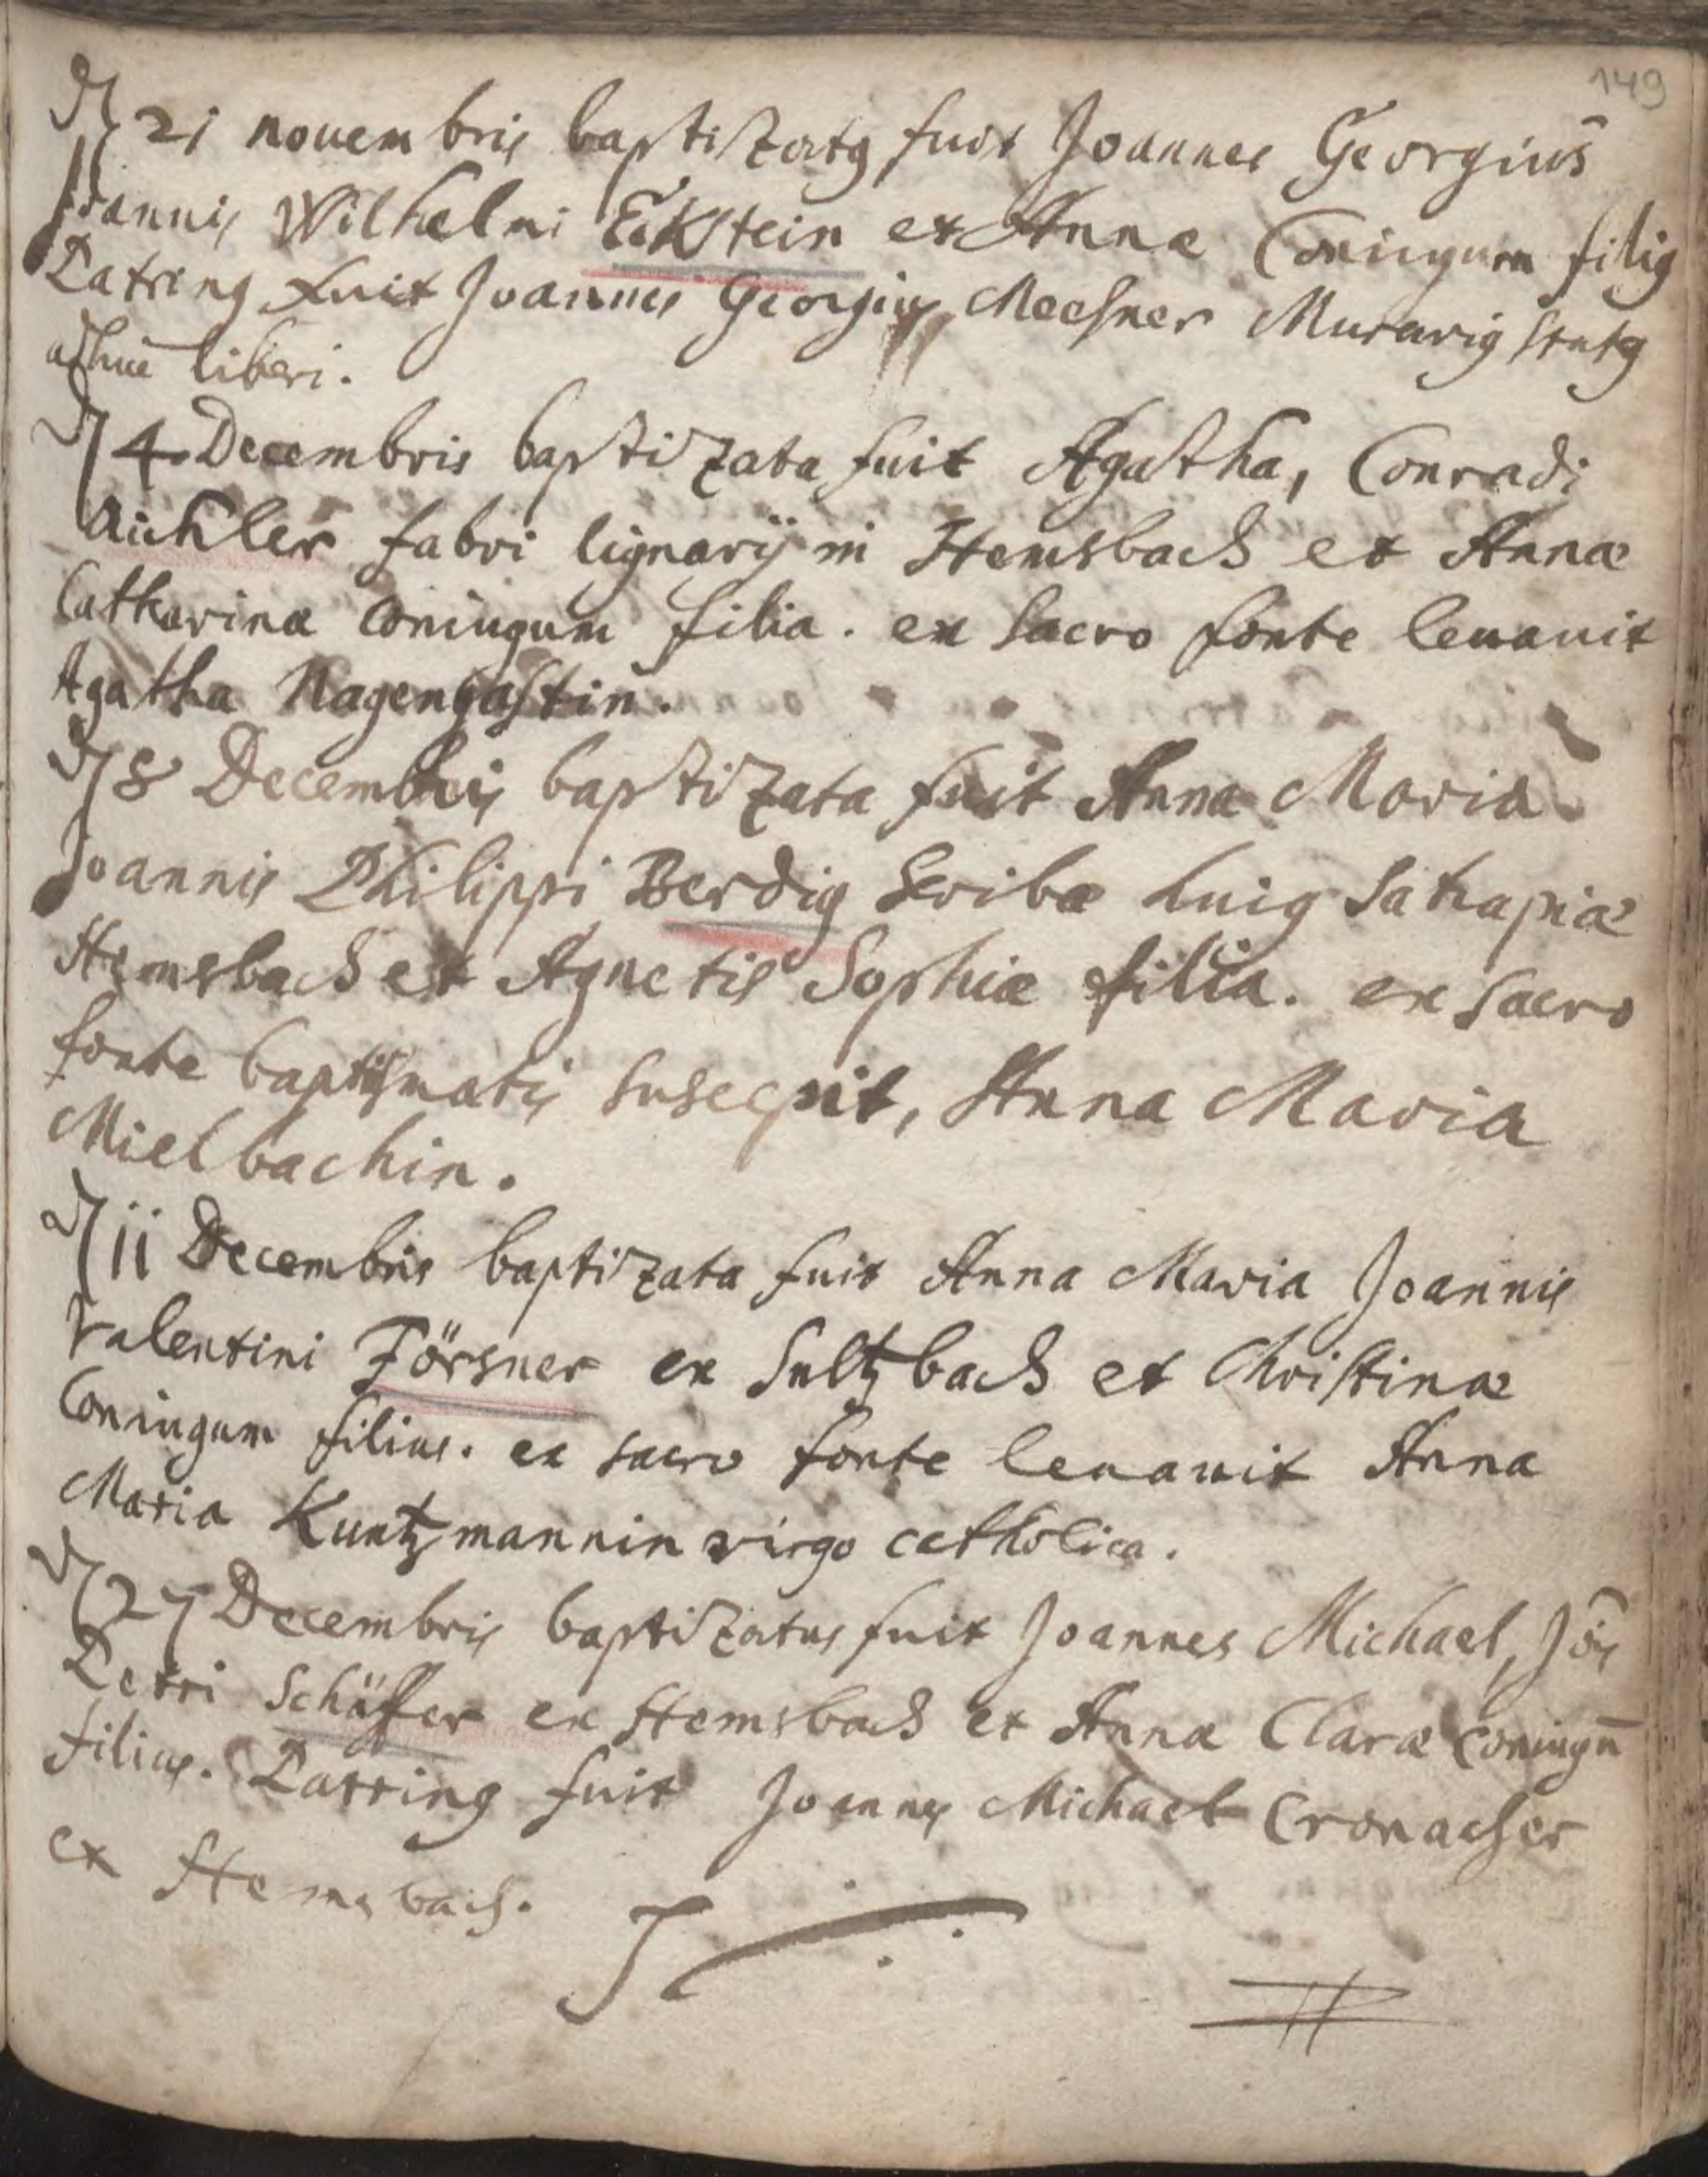 149
D 21 nouembris baptizatus fuit Joannes Georgius
Joannis Wilhelmi Eckstein et Annæ Coniugum filius
Patrinus fuit Joannes Georgius Meesner Murarius status
adhuc liberi.
D 4 Decembris baptizata fuit Agatha, Conradi
Aichler fabri lignarij in Hemsbach et Annæ
Catharinæ Coniugum filia. ex sacro fonte leuauit
Agatha Nagengastin.
D 8 Decembris baptizata fuit Anna Maria
Joannis Philippi Berdig scribæ huius satrapiæ
Hemsbach et Agnetis Sophiæ filia. ex sacro
fonte baptismatis suscepit, Anna Maria
Mielbachin.
D 11 Decembris baptizata fuit Anna Maria Joannis
Valentini Försner ex Sultzbach et Christinæ
Coniugum filius. ex sacro fonte leuauit Anna
Maria Kuntzmannin virgo catholica.
D 27 Decembris baptizatus fuit Joannes Michael, Jois
Petri Schäffer ex Hemsbach et Anna Claræ coniugū
filius. Patrinus fuit Joannes Michael Cronacher
ex Hemsbach.